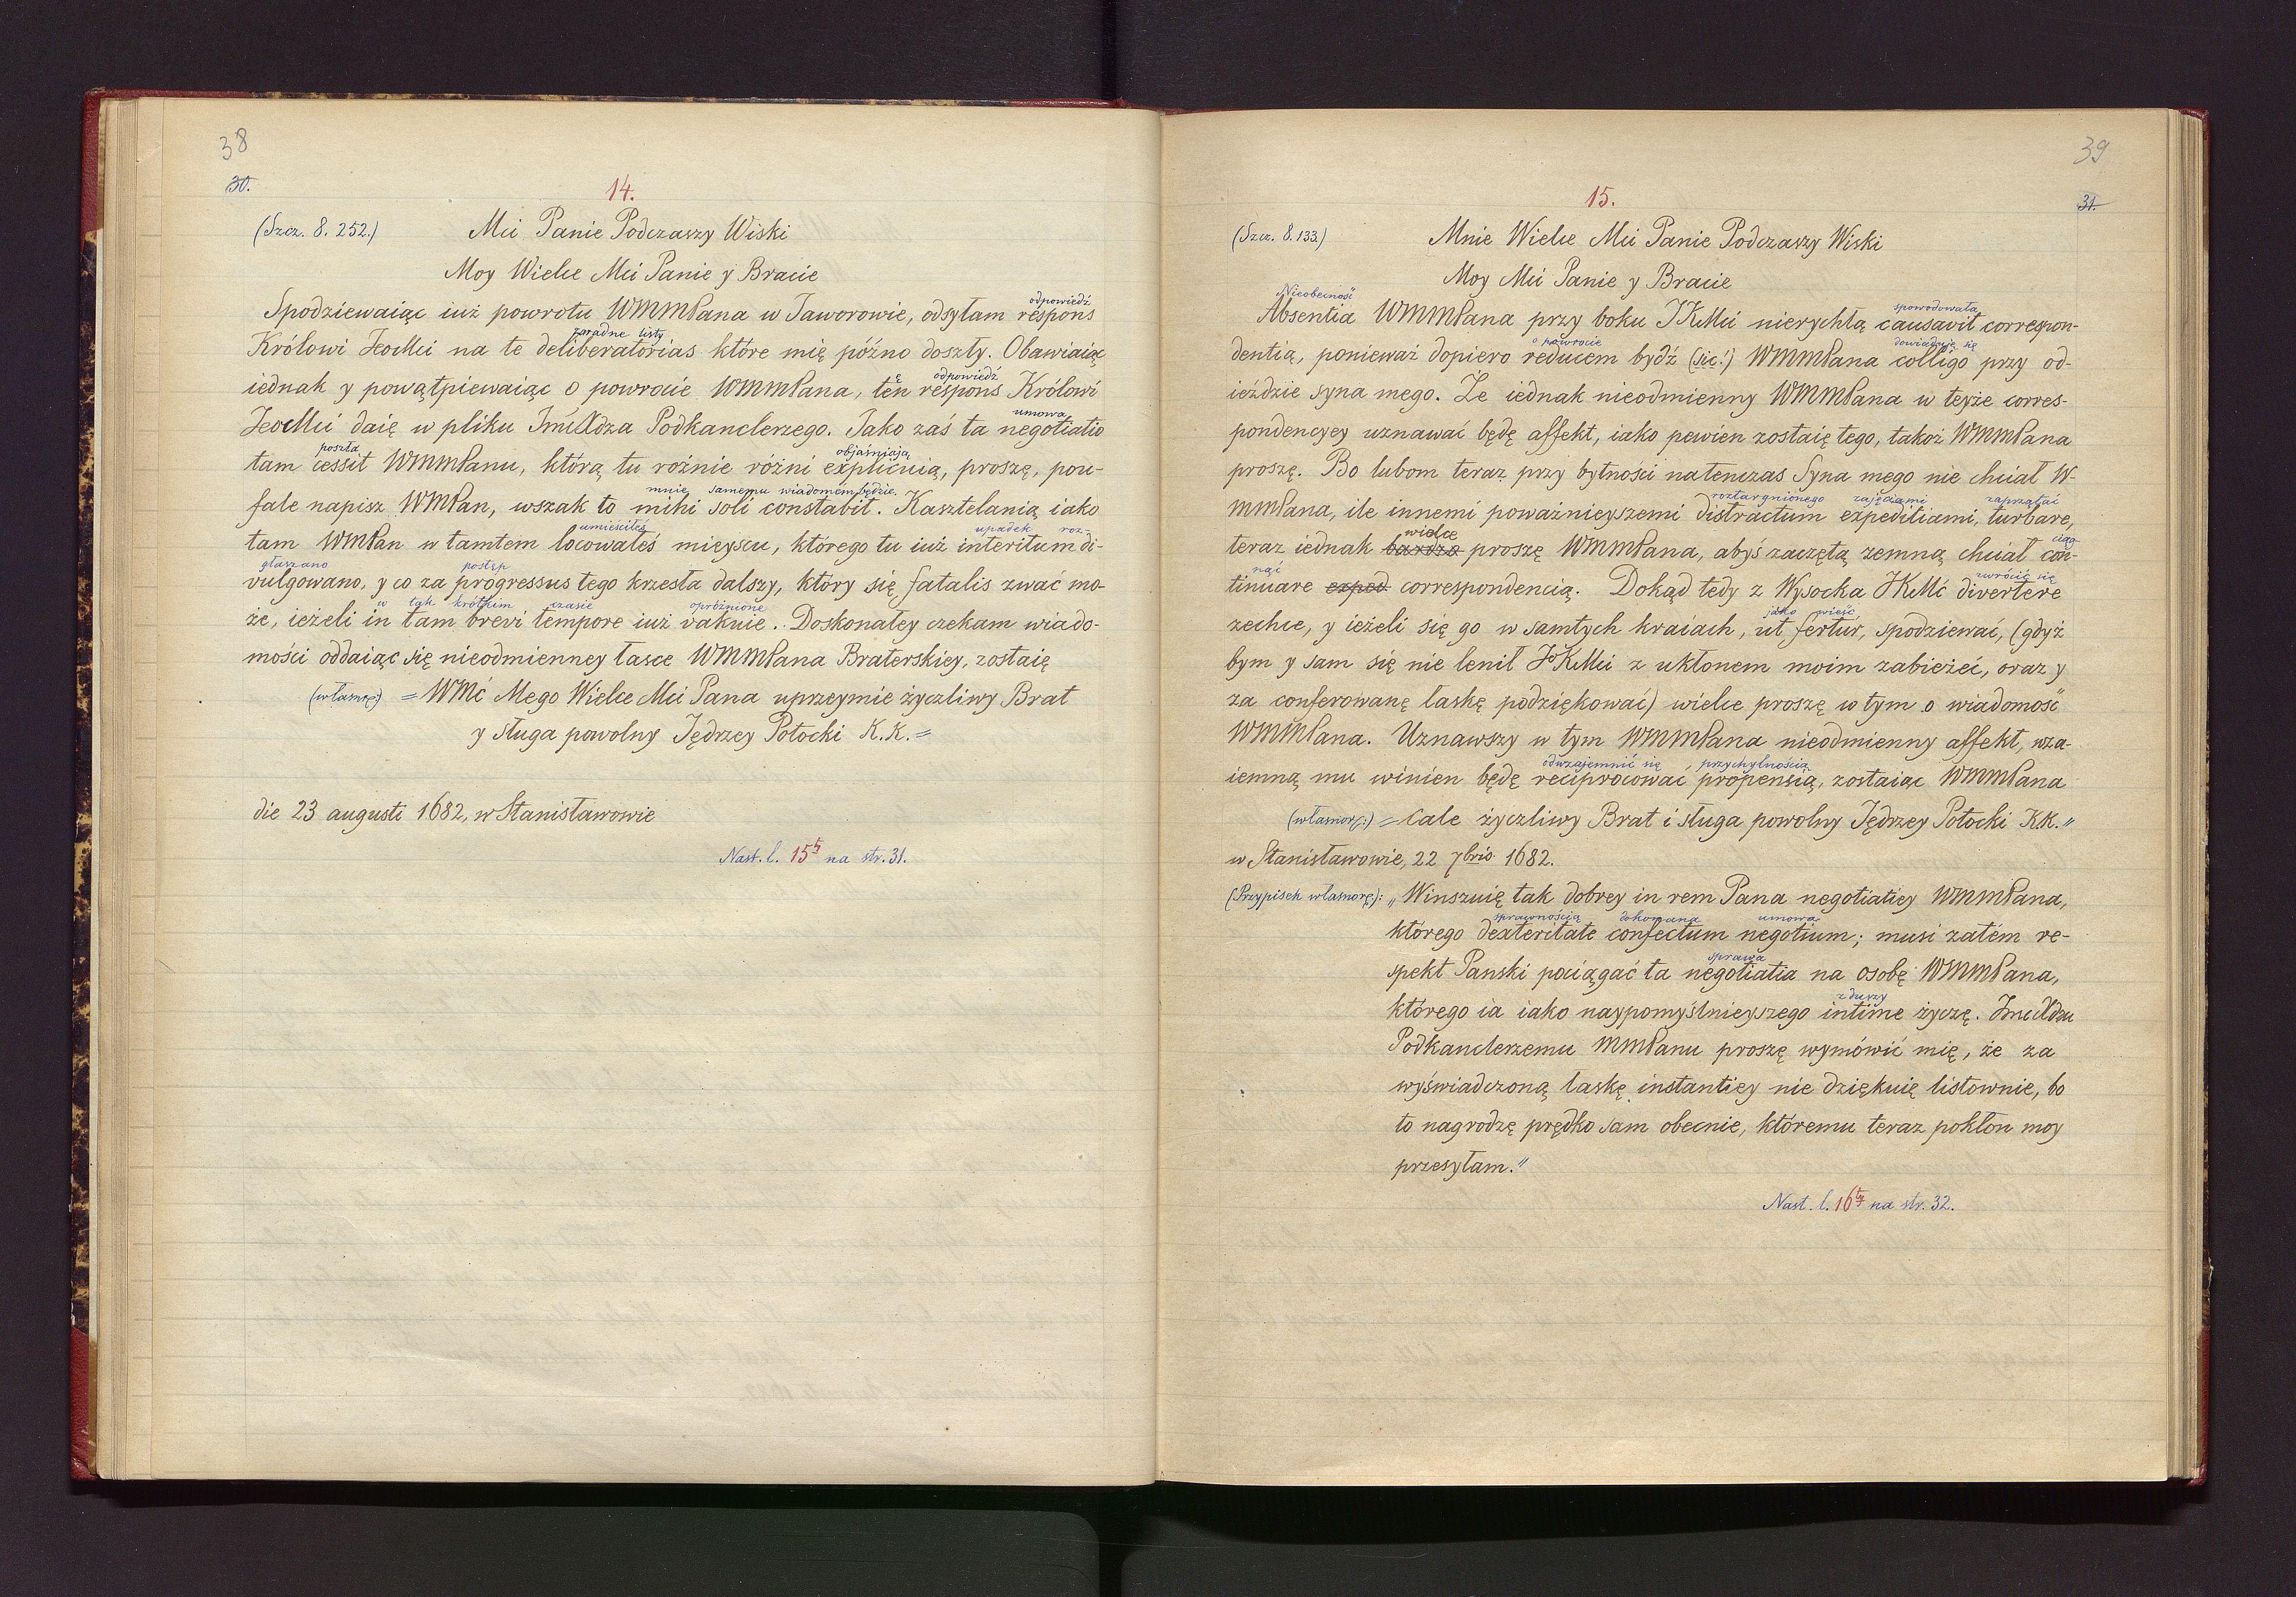 38
30.
14.
(Szcz. 8. 252.)
Mci Panie Podczaszy Wiski
Moy Wielce Mci Panie y Bracie
odpowiedź
Spodziewaiąc iuż powrotu WMMPana w Jaworowie, odsyłam respons
zaradne listy
Królowi JeoMci na te deliberatorias które mię późno doszły. Obawiaiąc
odpowiedź
iednak y powątpiewaiąc o powrocie WMMPana, ten respons Królowi
umowa
JeoMci daię w pliku ImćXdza Podkanclerzego. Jako zaś ta negotiatio
poszła objaśniają
tam cessit WMMPanu, którą tu rożnie różni explicuią, proszę, pou-
mnie samemu wiadomem będzie.
fale napisz WMPan, wszak to mihi soli constabit. Kasztelanią iako
umieściłeś upadek roz-
tam WMPan w tamtem locowałeś mieyscu, którego tu iuż interitum di-
głaszano postęp
vulgowano, y co za progressus tego krzesła dalszy, który się fatalis zwać mo-
w tak krótkim czasie opróżnione
że, ieżeli in tam brevi tempore iuż vakuie. Doskonałey czekam wiado-
mości oddaiąc się nieodmienney łasce WMMPana Braterskiey, zostaię
(własnrę:) = WMć Mego Wielce Mci Pana uprzeymie życzliwy Brat
y sługa powolny Jędrzey Potocki K.K. =
die 23 augusti 1682, w Stanisławowie
Nast. l. 15ty na str. 31.
39
31.
15.
(Szcz. 8. 133.)
Mnie Wielce Mci Panie Podczaszy Wiski
Moy Mci Panie y Bracie
Nieobecność spowodowała
Absentia WMMPana przy boku JKMci nierychłą causavit correspon-
o powrocie dowiaduję się
dentią, ponieważ dopiero reducem bydź (sic!) WMMPana colligo przy od-
ieździe syna mego. Że iednak nieodmienny WMMPana w teyże corres-
pondencyey uznawać będę affekt, iako pewien zostaię tego, takoż WMMPana
proszę. Bo lubom teraz przy bytności natenczas Syna mego nie chciał W-
roztargnionego zajęciami zaprzątać
MMPana, ile innemi poważnieyszemi distractum expeditiami, turbare,
wielce ciąg-
teraz iednak bardzo proszę WMMPana, abyś zaczętą zemną chciał con-
nąć zwrócić się
tinuare exped correspondencią. Dokąd tedy z Wysocka JKMć divertere
jako wieść
zechce, y ieżeli się go w samtych kraiach, ut fertur, spodziewać, (gdyż
bym y sam się nie lenił JoKMci z ukłonem moim zabieżeć, oraz y
za conferowanę łaskę podziękować) wielce proszę w tym o wiadomość
WMMPana. Uznawszy w tym WMMPana nieodmienny affekt, wza-
odwzajemnić się przychylnością
iemną mu winien będę reciprocować propensią, zostaiąc WMMPana
(własnorę:) = cale życzliwy Brat i sługa powolny Jędrzey Potocki K.K."
w Stanisławowie, 22 7bris 1682.
(Przypisek własnorę): „Winszuię tak dobrey in rem Pana negotiatiey WMMPana,
sprawnością dokonana umowa
którego dexteritate confectum negotium; musi zatém re-
sprawa
spekt Panski pociągać ta negotiatia na osobę WMMPana,
z duszy
którego ia iako naypomyślnieyszego intime życzę. ImćXdzu
Podkanclerzemu MMPanu proszę wymówić mię, że za
wyświadczoną łaskę instantiey nie dziękuię listownie, bo
to nagrodzę prędko sam obecnie, któremu teraz pokłon moy
przesyłam."
Nast. l. 16ty na str. 32.